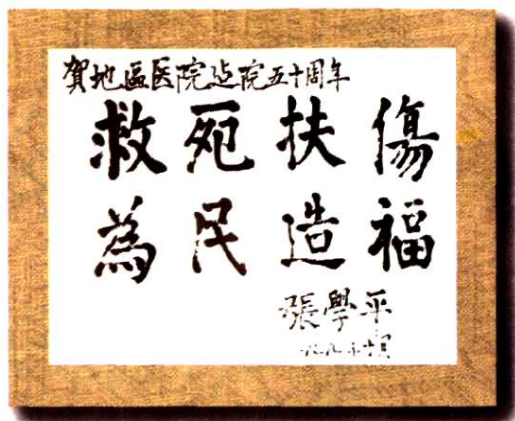 賀地區医院建院五十周年
救死扶傷
為民造福
張學平